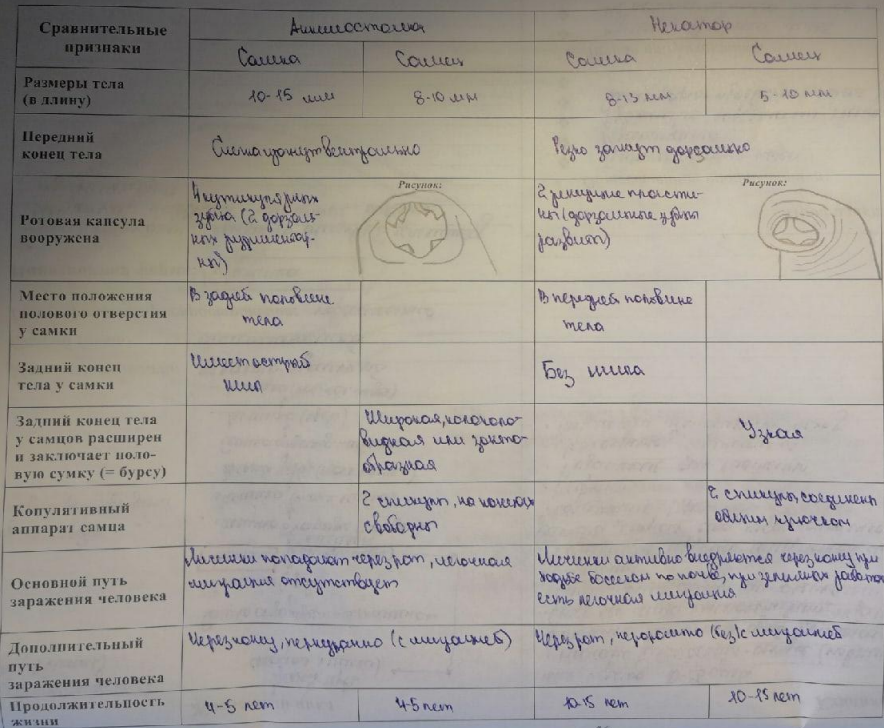 Сравнительные признаки
Анкилостома
Некатор
Самка
Самец
Самка
Самец
Размеры тела
(в длину)
10-15 мм
8-10 мм
8-13 мм
5-10 мм
Передний
конец тела
Слегка изогнут вентрально
Резко загнут дорсально
Ротовая капсула
вооружена
4 кутикулярных
зубца (2 дорзаль-
ных рудиментар-
ны)
Рисунок:
2 режущие пласти-
ны (дорзальные зубцы
развиты)
Рисунок:
Место положения
полового отверстия
у самки
В задней половине
тела
В передней половине
тела
Задний конец
тела у самки
Имеет острый
шип
Без шипа
Задний конец тела
у самцов расширен
и заключает поло-
вую сумку (= бурсу)
Широкая, колоколо-
видная или зонто-
образная
Узкая
Копулятивный
аппарат самца
2 спикулы, на концах
свободны
2 спикулы, соединены
общим крючком
Основной путь
заражения человека
Личинки попадают через рот, легочная
миграция отсутствует
Личинки активно внедряются через кожу при
ходьбе босиком по почве, при земляных работах
есть легочная миграция
Дополнительный
путь
заражения человека
Через кожу, перкутанно (с миграцией)
Через рот, перорально (без/с миграцией
Продолжительность
жизни
4-5 лет
4-5 лет
10-15 лет
10-15 лет